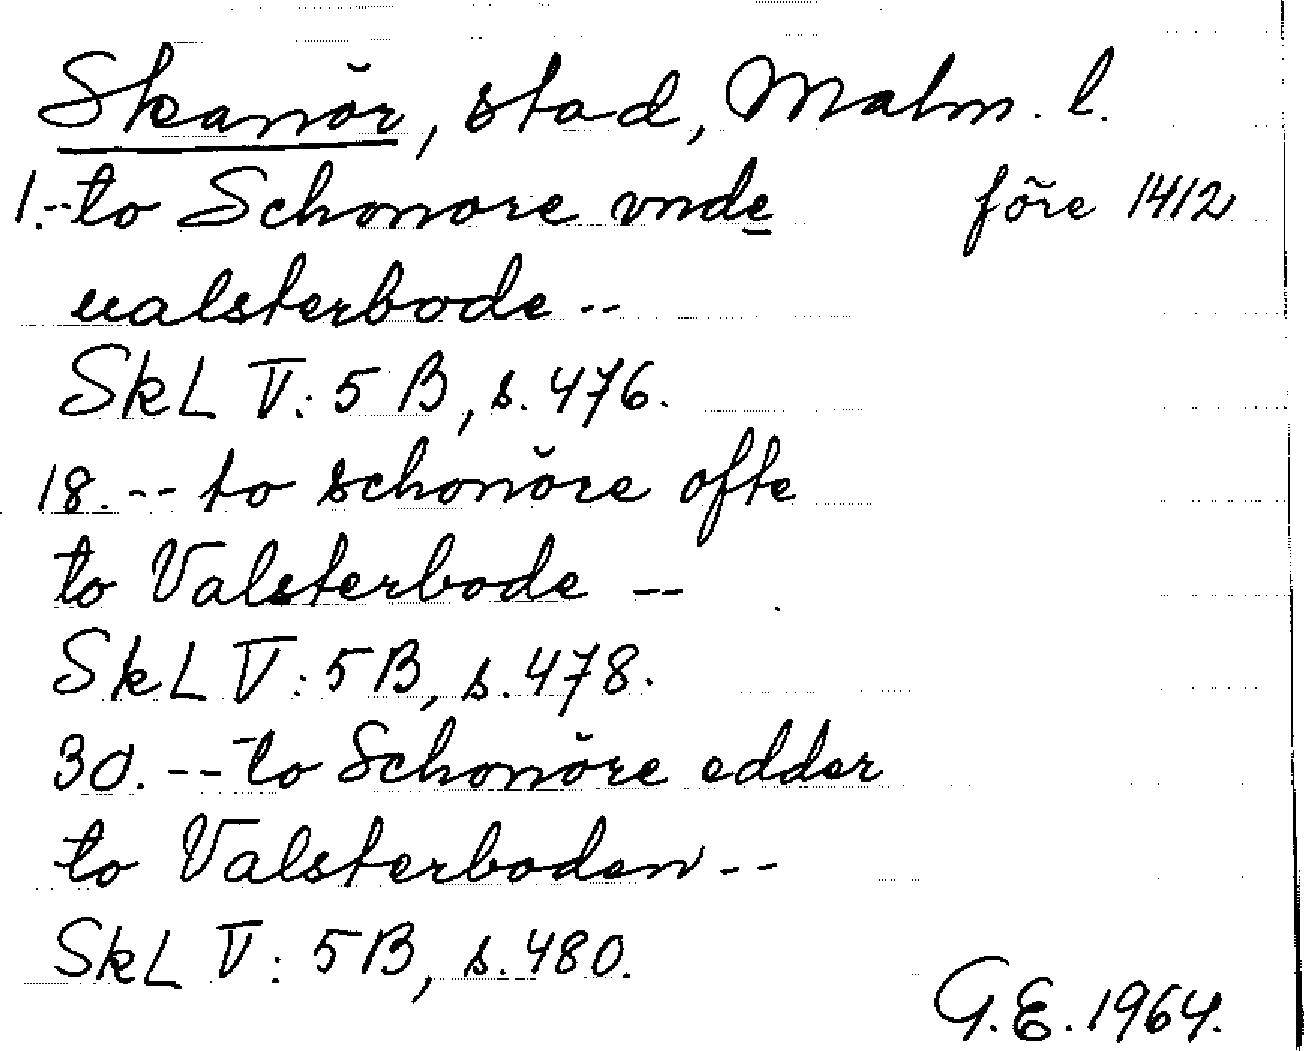 Skanör, stad, Malm. l.
1.--to Schonore vnde före 1412
ualsterbode --
SkL V: 5 B, s. 476.
18. -- to schonöre ofte
to Valsterbode --
SkL V: 5 B, s. 478.
30. -- to Schonöre edder
to Valsterboden --
SkL V: 5 B, s. 480.
G.E. 1964.